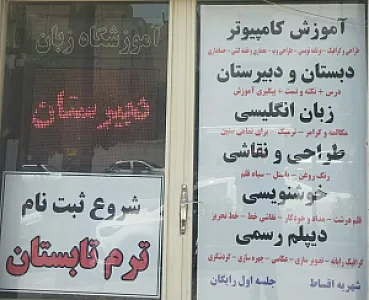 آموزشگاه زبان
دبیرستان
شروع ثبت نام
ترم تابستان
آموزش کامپیوتر
طراحی و گرافیک - برنامه نویسی - طراحی وب - معماری و نقشه کشی - حسابداری
دبستان و دبیرستان
درس + نکته و تست + پیگیری آموزش
زبان انگلیسی
مکالمه و گرامر - ترمیک - برای تمامی سنین
طراحی و نقاشی
رنگ روغن - پاستل - سیاه قلم
خوشنویسی
قلم هرشت - مداد و خودکار - نقاشی خط - خط تحریر
دیپلم رسمی
گرافیک رایانه - تصویر سازی - عکاسی - چهره سازی - گردشگری
شهریه اقساط جلسه اول رایگان